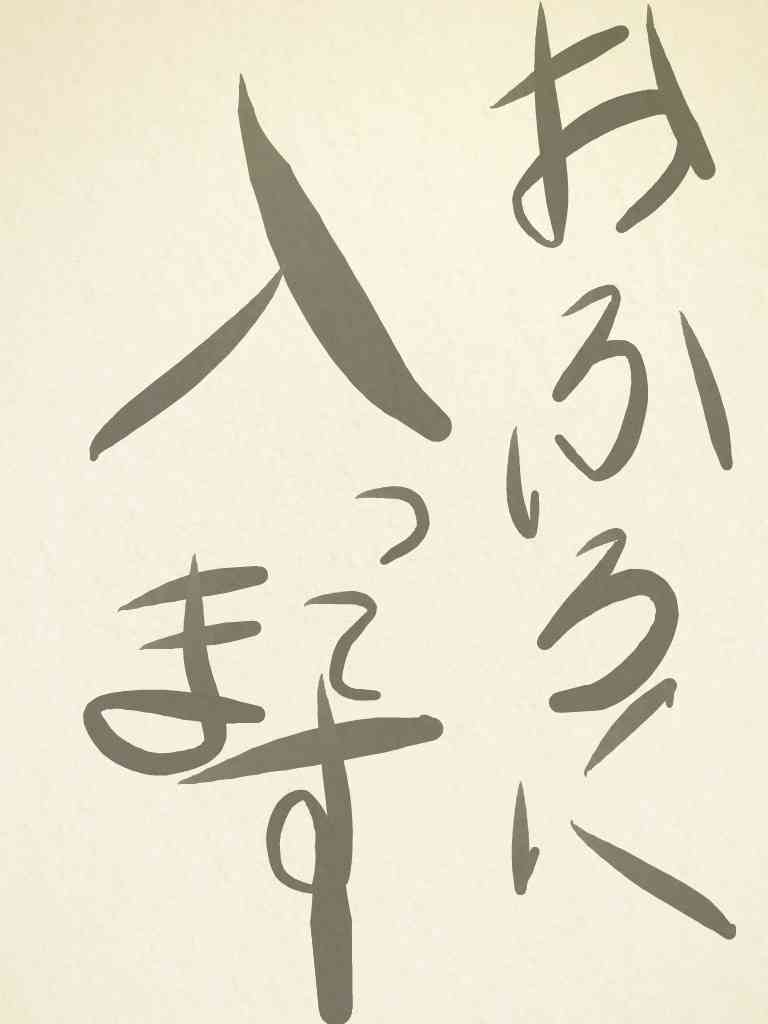 おふろに
入って
ます